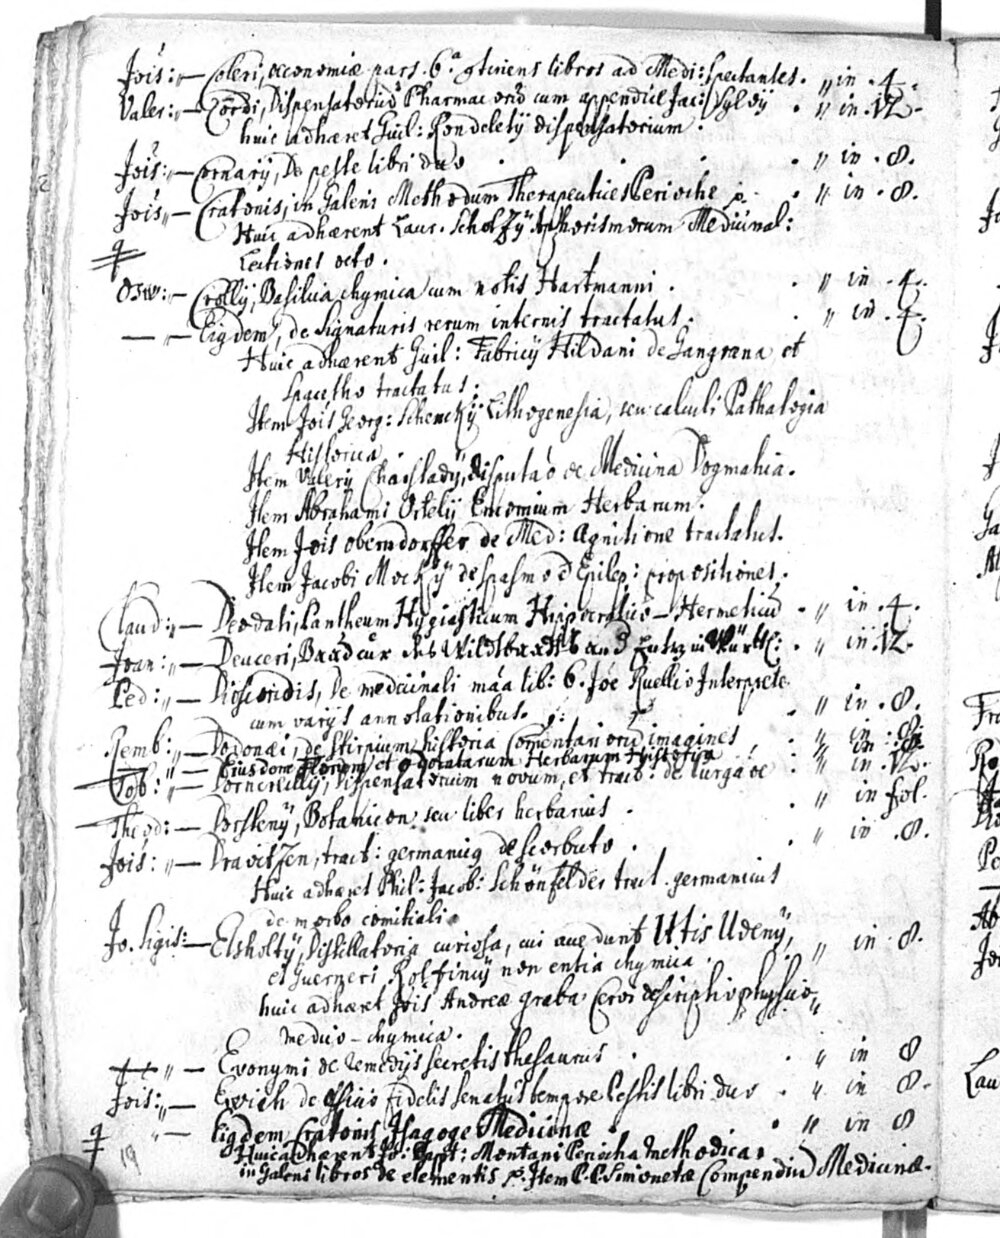 Jois: „ — Coleri, œconomiæ pars. 6.ª gtinens libros ad Medi: spectantes. „ in . 4.
Valer: „ — Cordi, Dispensatoriũ Pharmac orũ cum appendice Jac: Sylvÿ . „ in . 12.
huic adhæret Guil: Rondeletÿ dispensatorium .
Jois: „ — Cornarÿ, De peste libri duo . . . . „ in . 8.
Jois „ — Cratonis, in Galeni Methodum Therapeutices Perioche p. . „ in . 8.
Huic adhærent Laur. Scholzÿ Aphorismorum Medicinal:
Lectiones octo .
Osw: — Crollÿ, Basilica chymica cum notis Hartmanni . . „ in . 4.
— „ — Eigdem, de signaturis rerum internis tractatus. . „ in . 4.
Huic adhærent Guil: Fabricÿ Hildani de Gangræna et
Spacetho tractatus :
Item Jois Georg: Schenckÿ Lithogenesia, seu calculi Pathalogia
Historica .
Item Valerÿ disputaõ de Medicina Dogmatica.
Item Abrahami Ortelÿ Encomium Herbarum.
Item Jois oberndorffer de Med: Agnitione tractatus.
Item Jacobi Mockÿ de spasmo & Epilep: propositiones.
Claud: „ — Deodati, Pantheum Hygiasticum Hippocraticõ - Hermeticũ . „ in . 4.
Joan: „ — Deuceri, Baad cur des Wildtbaadts . „ in . 12.
Ped: „ — Dioscoridis, De medicinali mãa lib: 6. Jõe Ruellio Interprete
cum varÿs annotationibus. . „ in . 8.
Remb: „ — Dodonæi, de stirpium historia Comentariorũ imagines . „ in . 8.
„ — Eiusdem Florum et odoratarum Herbarum Historia . „ in . 12.
Tob: „ — Dornereillÿ, Dispensatorium novum, et tract: de Purgãoe . „ in fol.
Theod: — Dorstenÿ, Botanicon seu liber herbarius . . „ in . 8.
Jois: „ — Drawitzen, tract: germanicg de scorbuto . .
Huic adhæret Phil: Jacob: Schönfelder tract. germanicus
de morbo comitiali.
Jo. Sigis: — Elsholtÿ, Distillatoria curiosa, cui accedunt Utis Udenÿ, „ in . 8.
et Guerneri Rolfincÿ non entia chymica .
huic adhæret Jois Andreæ graba Cervi descriptio physico „
medico - chymica .
„ — Evonymi de remedÿs secretis thesaurus . . „ in 8
Jois: „ — Ewich de officio fidelis senatus tempore Pestis libri duo . „ in 8.
„ — Eigdem Cratonis Isagoge Medicinæ . . „ in 8
Huic adhærent Jo: Bapt: Montani Periocha methodica
in Galeni libros de elementis p. Item Simonetæ Compendiũ Medicinæ.
19